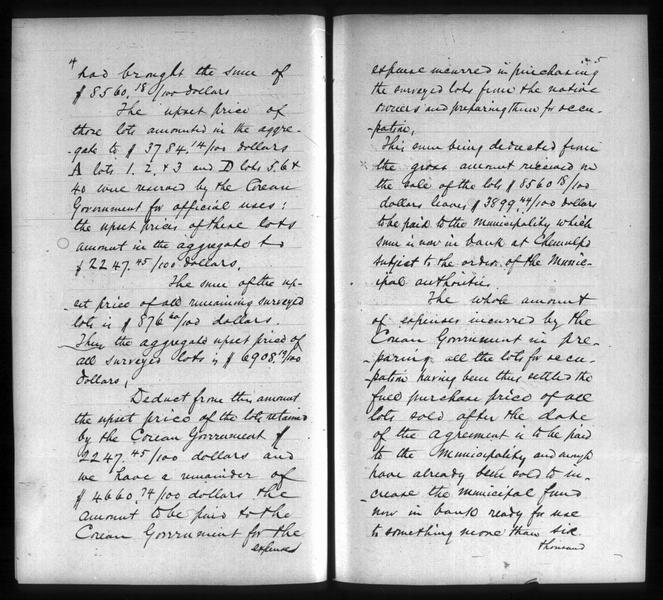 4
had brought the sum of
$ 8560.18/100 dollars
The upset price of
those lots amounted in the aggre-
-gate to $ 3784.14/100 dollars
A lots 1, 2, & 3 and D lots 5, 6 &
40 were reserved by the Corean
Government for official uses:
the upset prices of these lots
amount in the aggregate to
$ 2247.45/100 dollars.
The sum of the up-
set price of all remaining surveyed
lots is $ 876 60/100 dollars.
Thus the aggregate upset price of
all surveyed lots is $ 6908.19/100
dollars.
Deduct from this amount
the upset price of the lots retained
by the Corean Government $
2247.45/100 dollars and
we have a remainder of
$ 4660.74/100 dollars the
amount to be paid to the
Corean Government for the
expenses
5
expense incurred in purchasing
the surveyed lots from the native
owners and preparing them for occu-
-pation.
This sum being deducted from
the gross amount received on
the sale of the lots $ 8560 18/100
dollars leaves $ 3899 44/100 dollars
to be paid to the Municipality which
sum is now in bank at Chemulpo
subject to the order of the Munic-
ipal authorities.
The whole amount
of expenses incurred by the
Corean Government in pre-
-paring all the lots for occu-
-pation having been thus settled the
full purchase price of all
lots sold after the date
of the agreement is to be paid
to the Municipality and enough
have already been sold to in-
-crease the municipal fund
now in bank ready for use
to something more than six
thousand